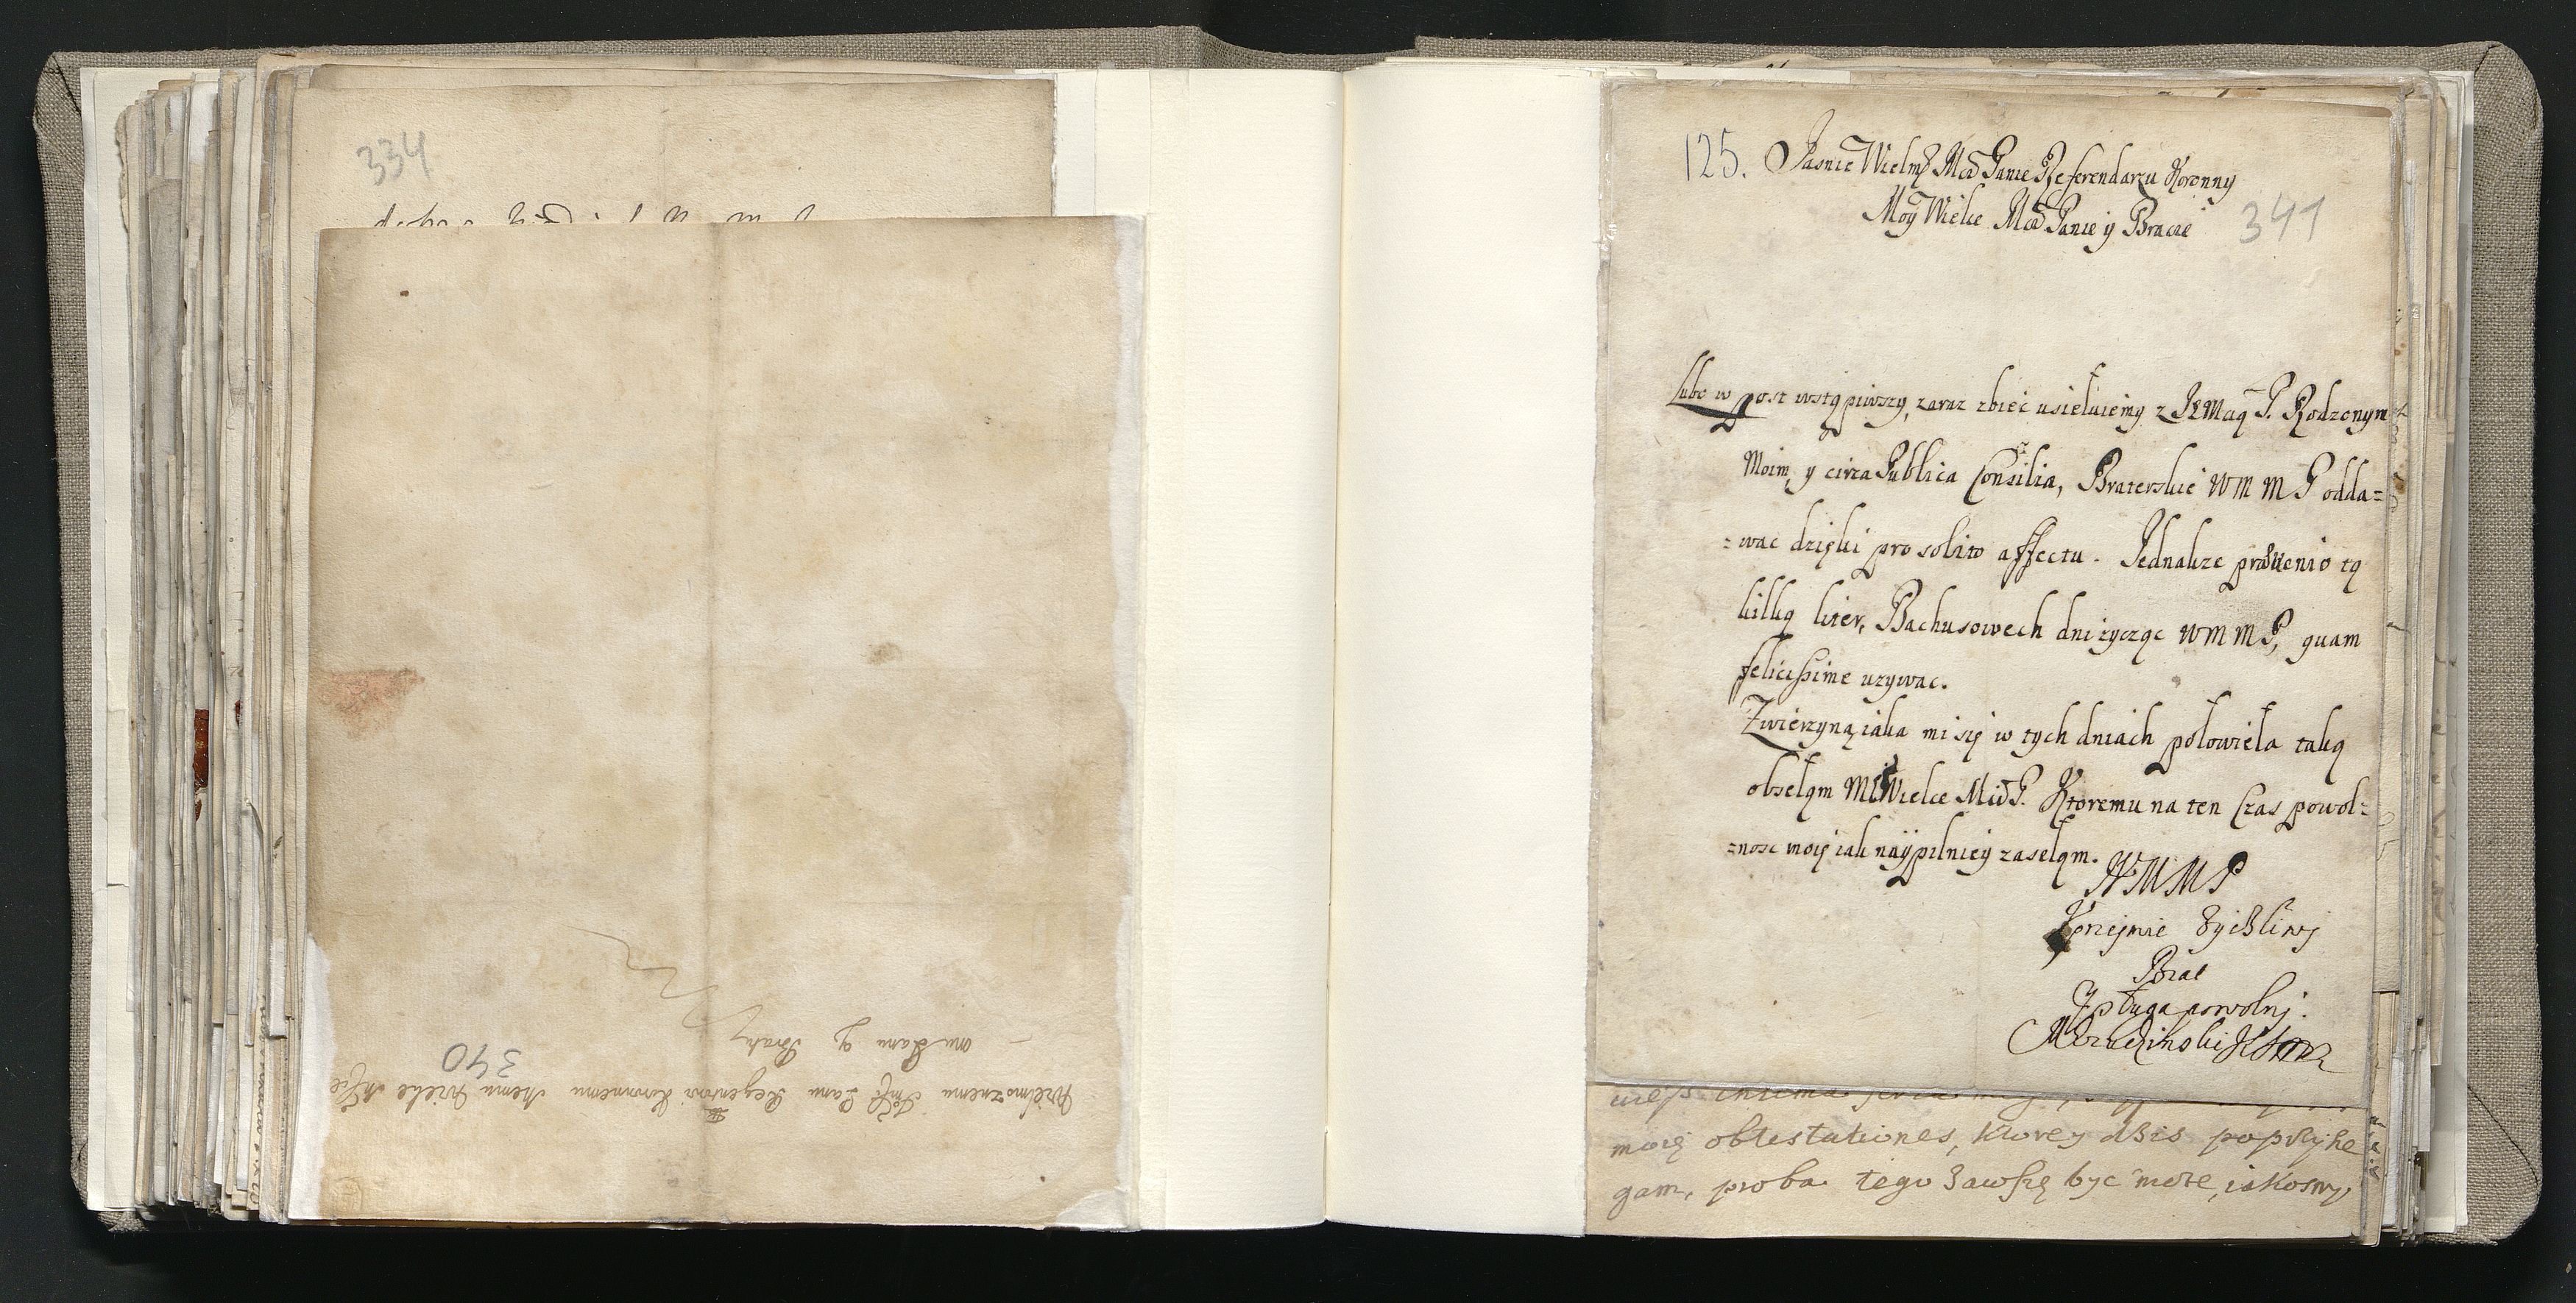 334
Wielmożnemu Jmsci Panu Regentowi Koronnemu Memu Wielce Mscie
mu Panu y Bratu
340
125.
Jasnie Wielmż Mćō Panie Referendarzu Koronny
Moy Wielce Mćō Panie y Bracie
341
Lubo w post wstąpiwszy, zaraz zbieć usiełuiemy z JeMcią P. Rodzonym
Moim, y circa Publica Consilia, Braterskie WM M P odda=
=wac dzięki pro solito affectu. Jednakze prævenio tą
kilką liter, Bachusowech dni zycząc WM M P, quam
felicissime uzywac.
Zwierzyną iaka mi się w tych dniach połowieła taką
obsełąm M Wielce Mćō P. Ktoremu na ten Czas powol=
=nosc moię iak naypilniey zasełąm.
WM M P
Uprzejmie Zyczliwy
Brat
Y sługa powolny.
moię obtestationes, ktorey dzis poprzysie
gam, proba tego zawszę byc moze, iakosmy